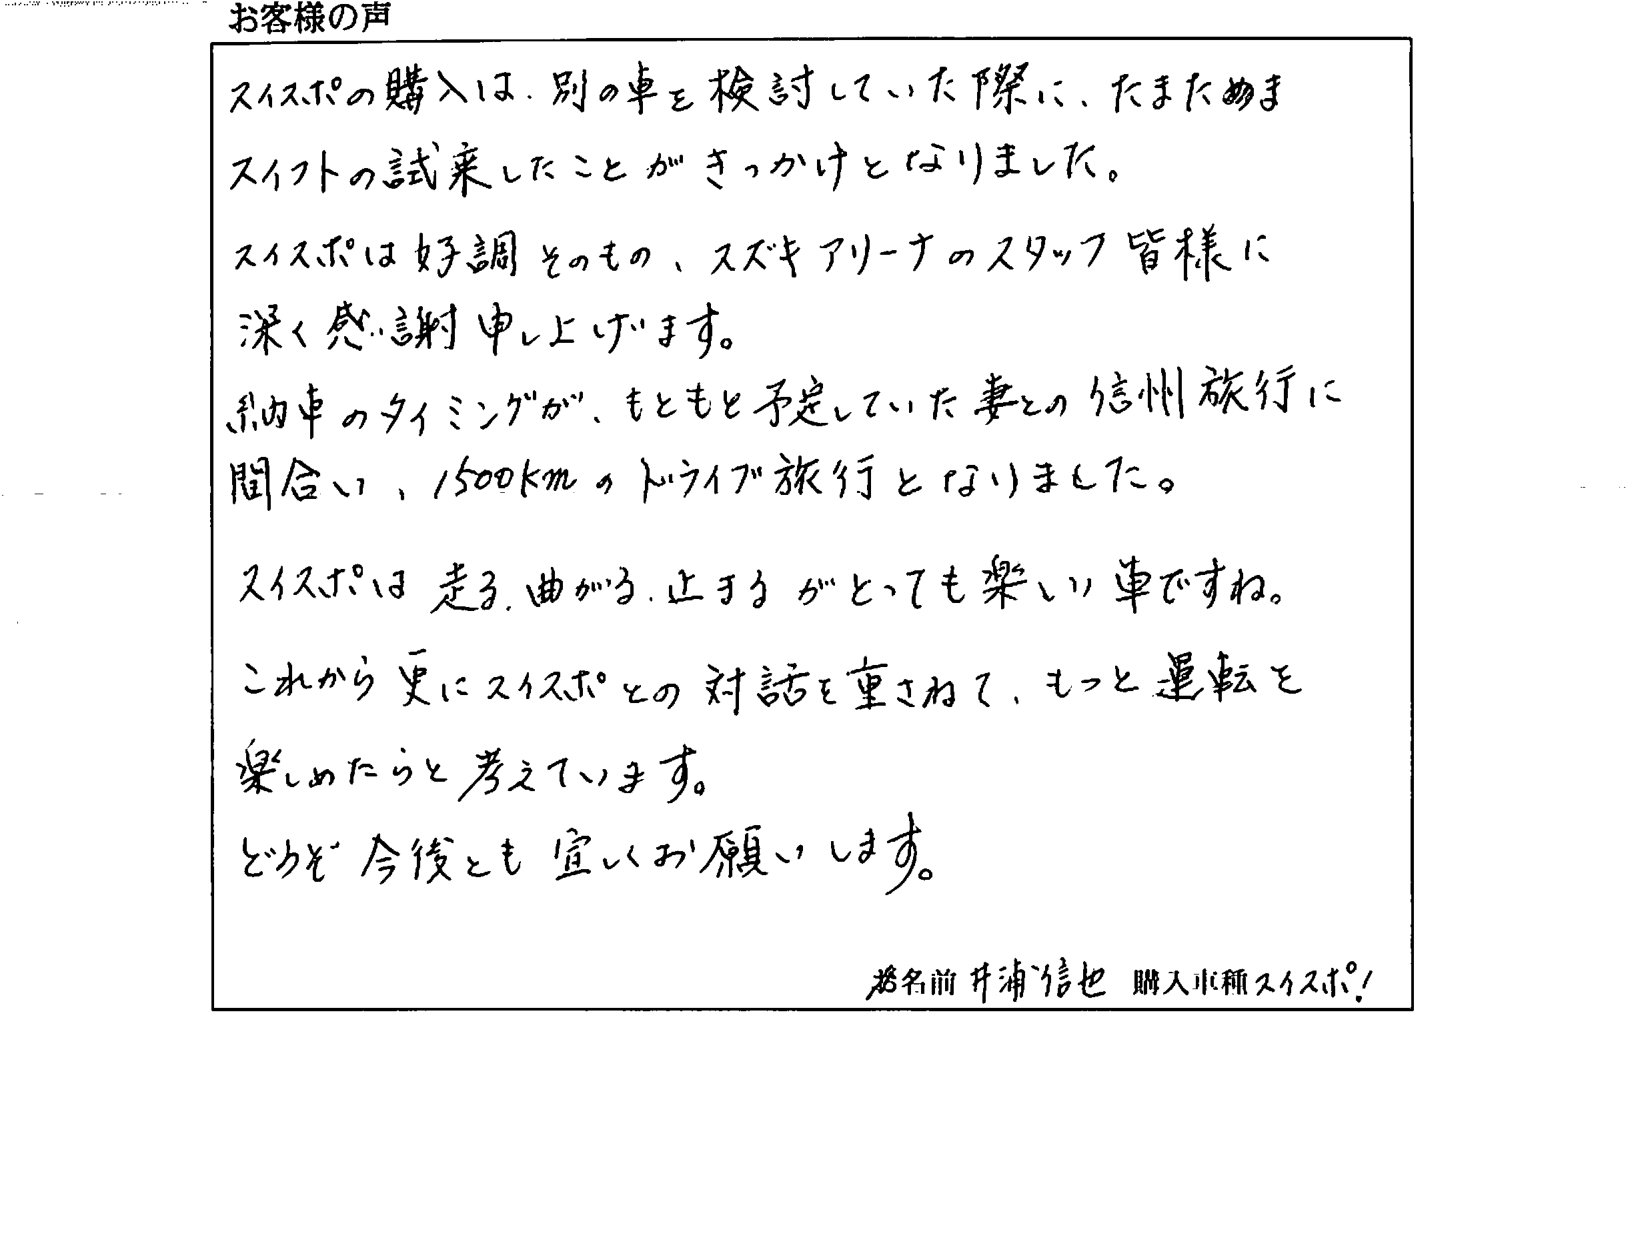 お客様の声
スイスポの購入は、別の車を検討していた際に、たまたまま
スイフトの試乗したことがきっかけとなりました。
スイスポは好調そのもの、スズキアリーナのスタッフ皆様に
深く感謝申し上げます。
納車のタイミングが、もともと予定していた妻との信州旅行に
間合い、1500kmのドライブ旅行となりました。
スイスポは走る、曲がる、止まるがとっても楽しい車ですね。
これから更にスイスポとの対話を重さねて、もっと運転を
楽しめたらと考えています。
どうぞ今後とも宜しくお願いします。
名前 井浦信也 購入車種 スイスポ!